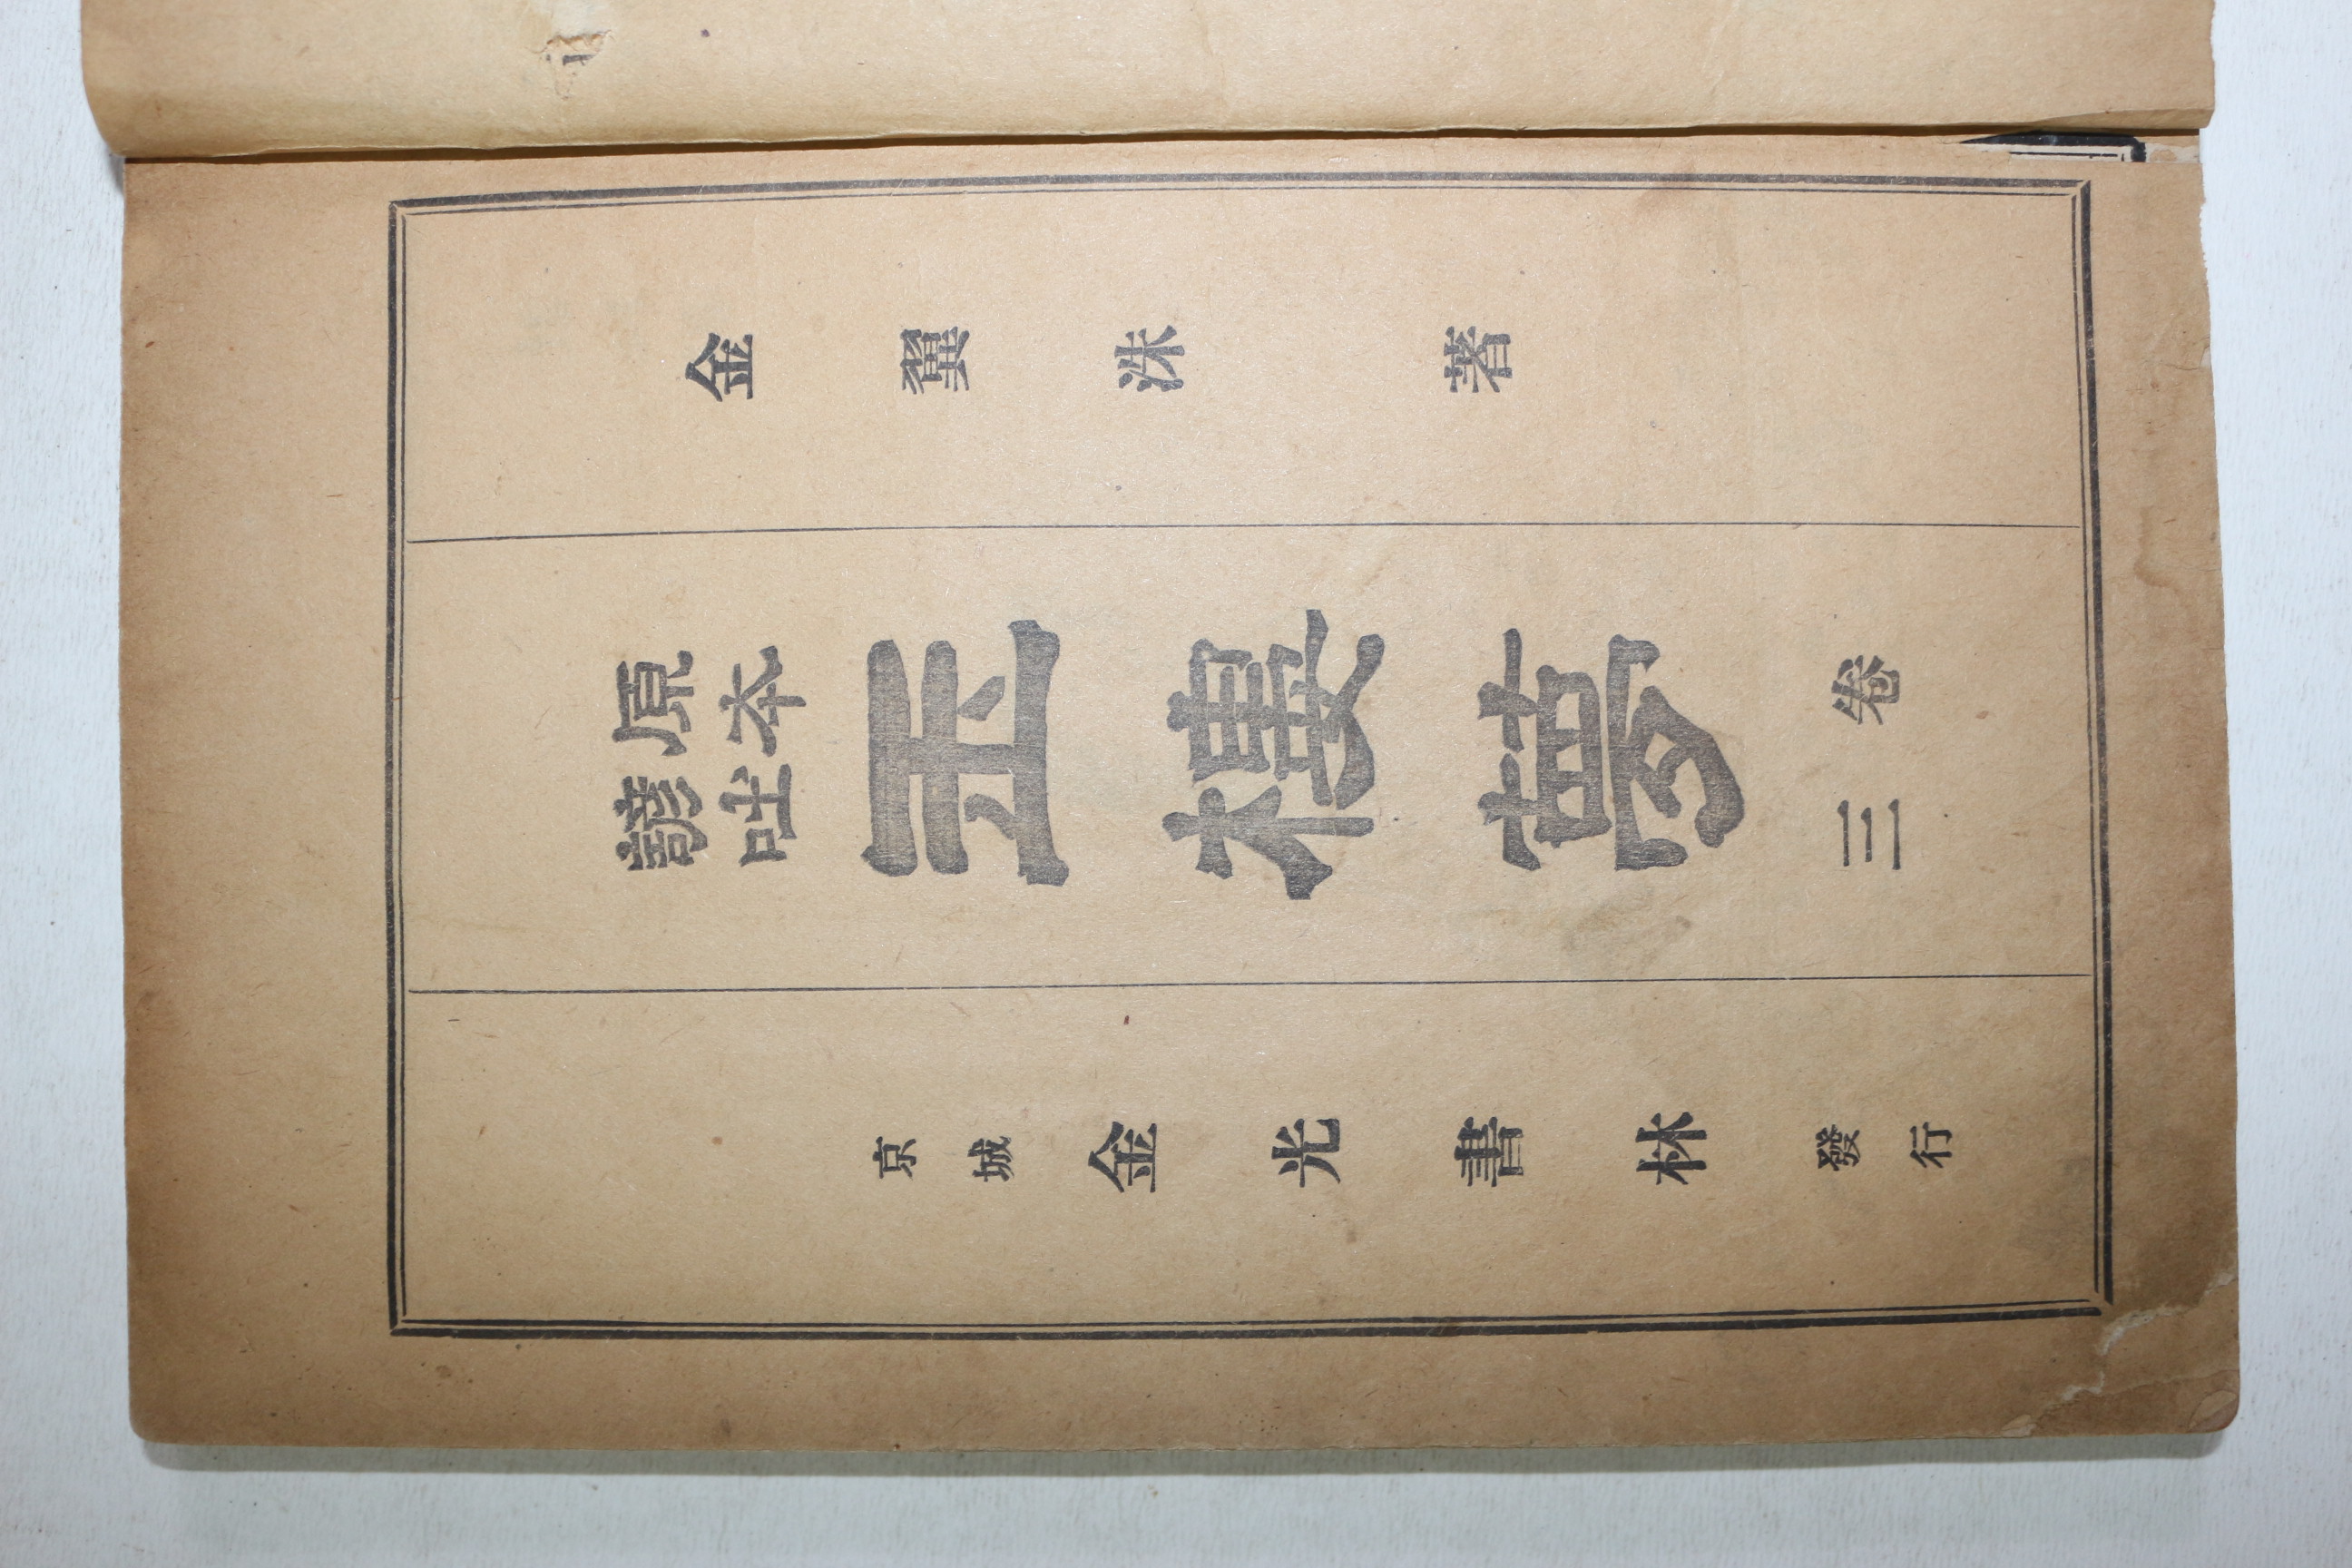 金翼洙著
原本
諺吐
玉樓夢
卷三
京城金光書林發行